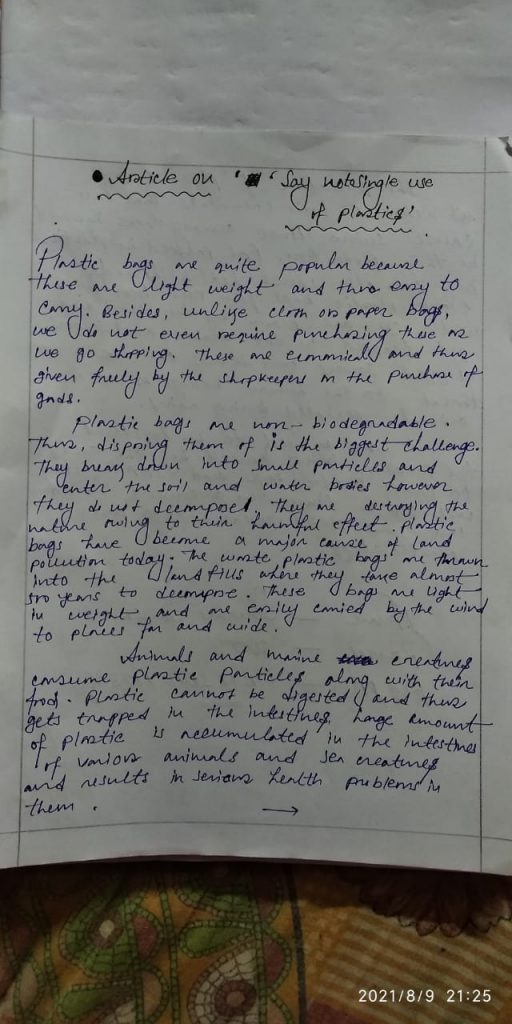 • Article on ' ' Say no to single use
of plastics'.
Plastic bags are quite popular because
these are light weight and thus easy to
carry. Besides, unlike cloth or paper bags,
we do not even require purchasing these as
we go shopping. These are economical and thus
given freely by the shopkeepers on the purchase of
goods.
Plastic bags are non-biodegradable.
Thus, disposing them of is the biggest challenge.
They break down into small particles and
enter the soil and water bodies however
they do not decompose, They are destroying the
nature owing to their harmful effect. Plastic
bags have become a major cause of land
pollution today. The waste plastic bags are thrown
into the landfills where they take almost
500 years to decompose. These bags are light
in weight and are easily carried by the wind
to places far and wide.
Animals and marine creatures
consume plastic particles along with their
food. Plastic cannot be digested and thus
gets trapped in the intestines, Large amount
of plastic is accumulated in the intestines
of various animals and sea creatures
and results in serious health problems in
them. →
2021/8/9 21:25